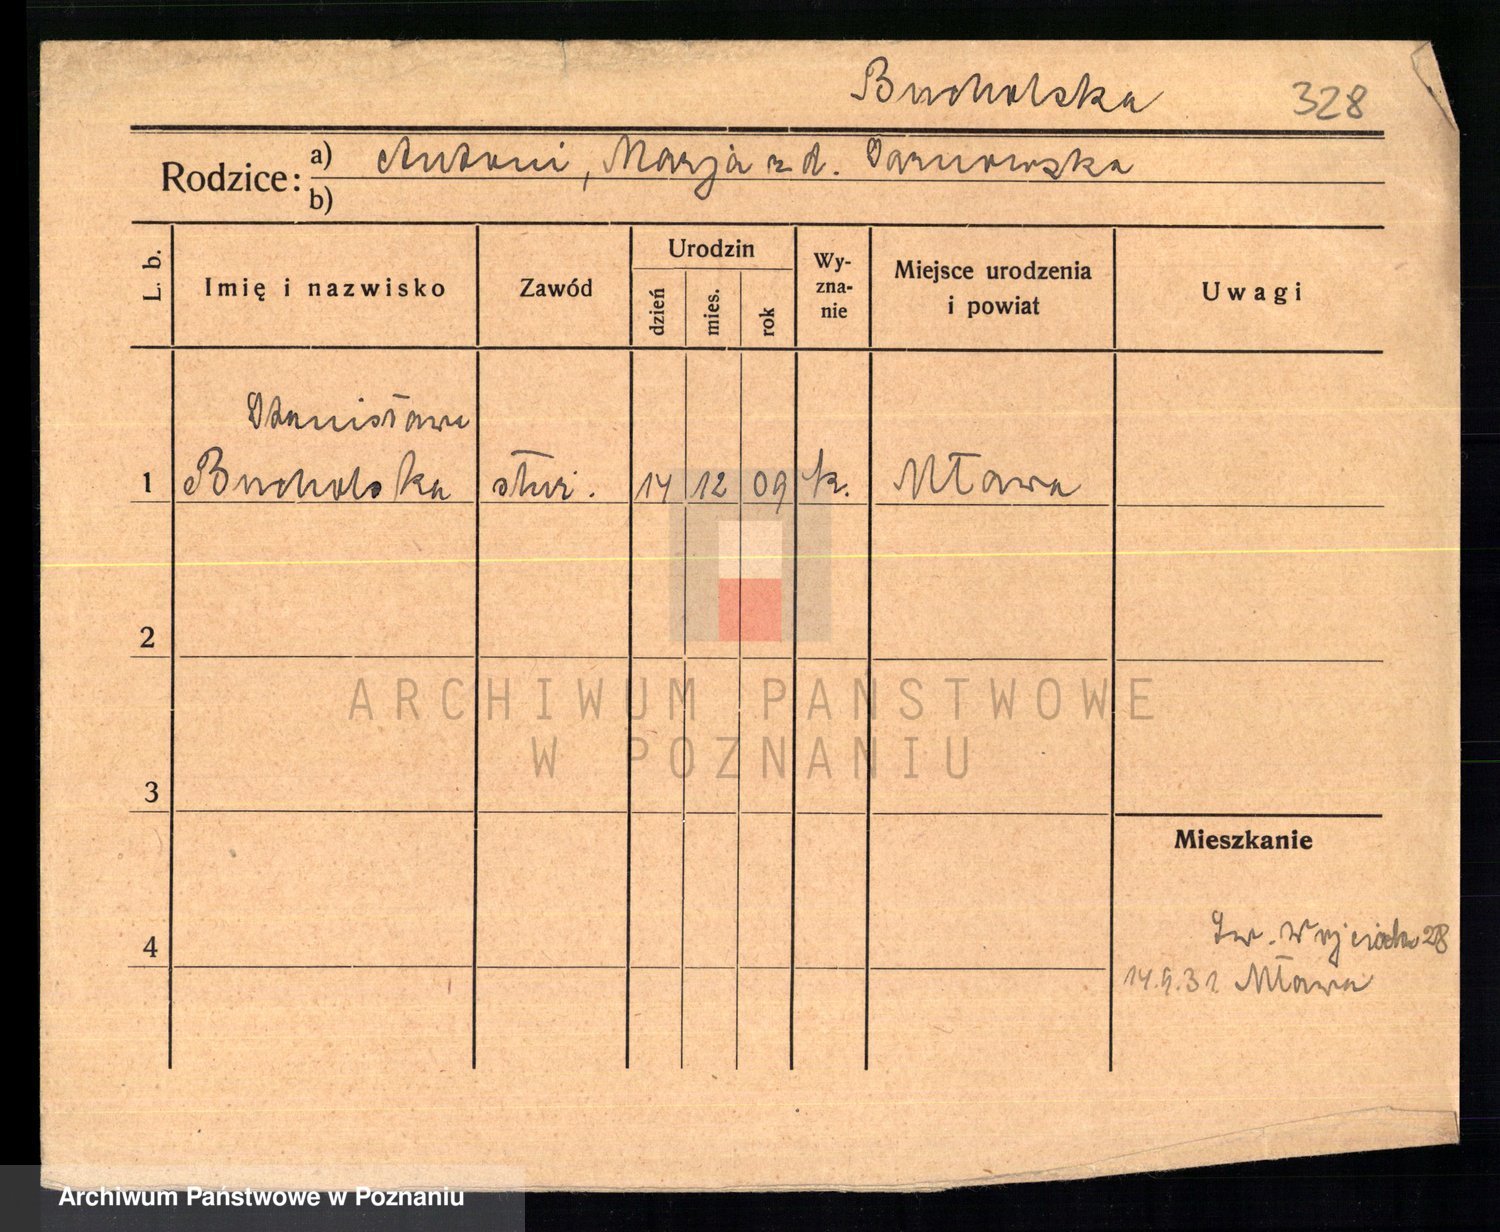 Bucholska 328
Rodzice: a) Antoni, Marja z d. Sarnowska
b)
L. b. Imię i nazwisko Zawód Urodzin dzień mies. rok Wy-zna-nie Miejsce urodzenia i powiat Uwagi
Stanisława
1 Bucholska służ. 14 12 09 k. Mława
2
ARCHIWUM PAŃSTWOWE
W POZNANIU
3
Mieszkanie
Św. Wojciech 28
4
14.9.31 Mława
Archiwum Państwowe w Poznaniu